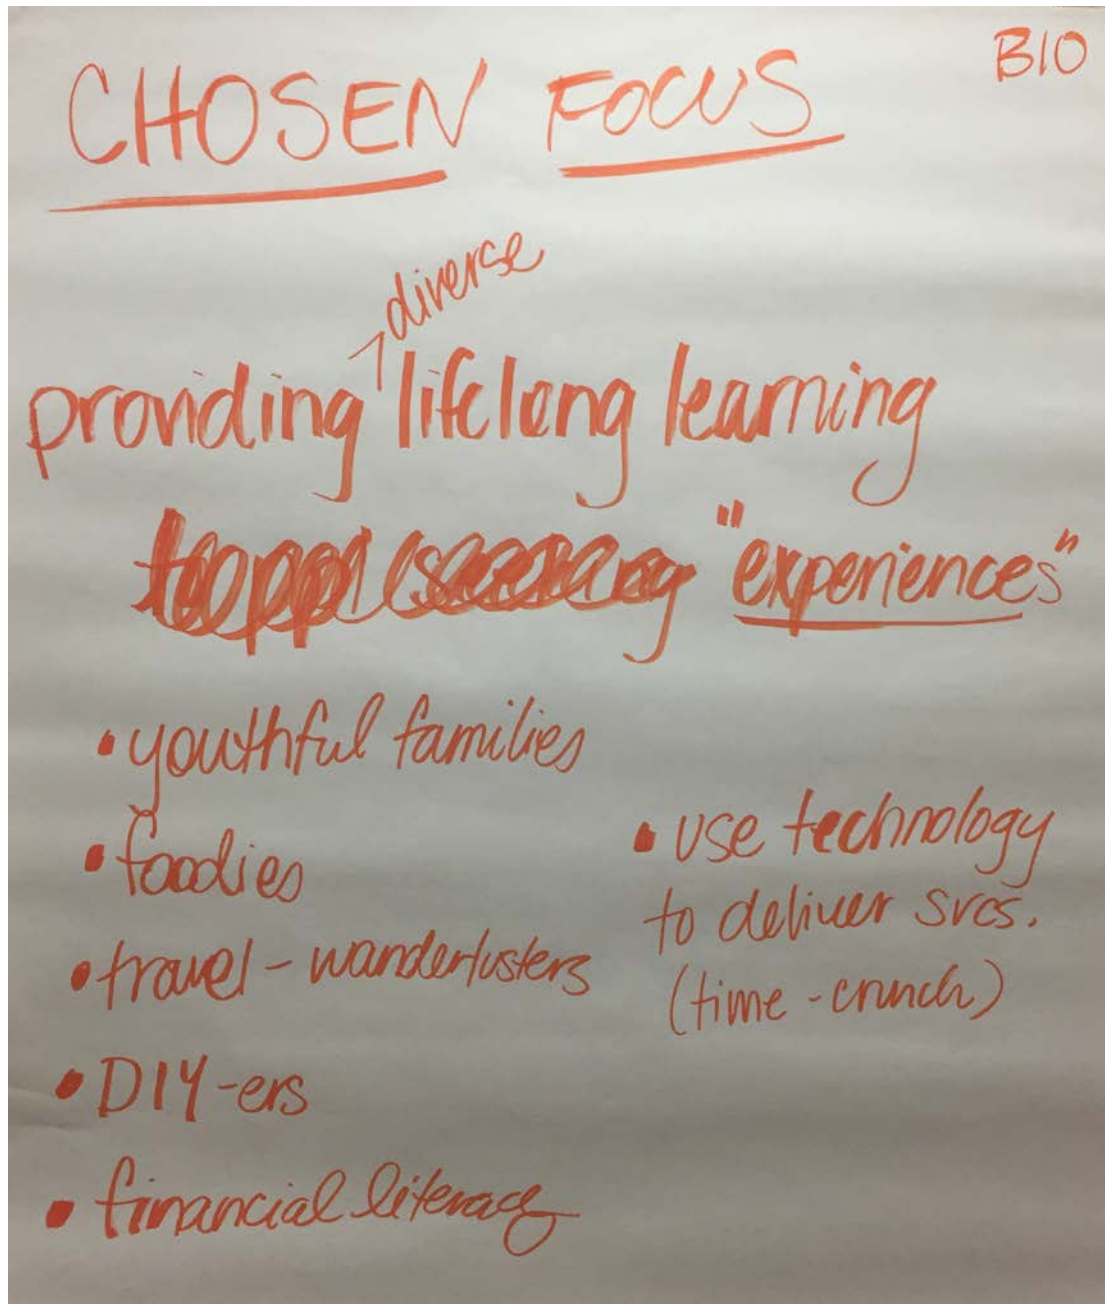 BIO
CHOSEN FOCUS
diverse
providing lifelong learning
"experiences"
• youthful families
• foodies
• travel - wanderlusters
• DIY-ers
• financial literacy
• use technology
to deliver svcs.
(time - crunch)